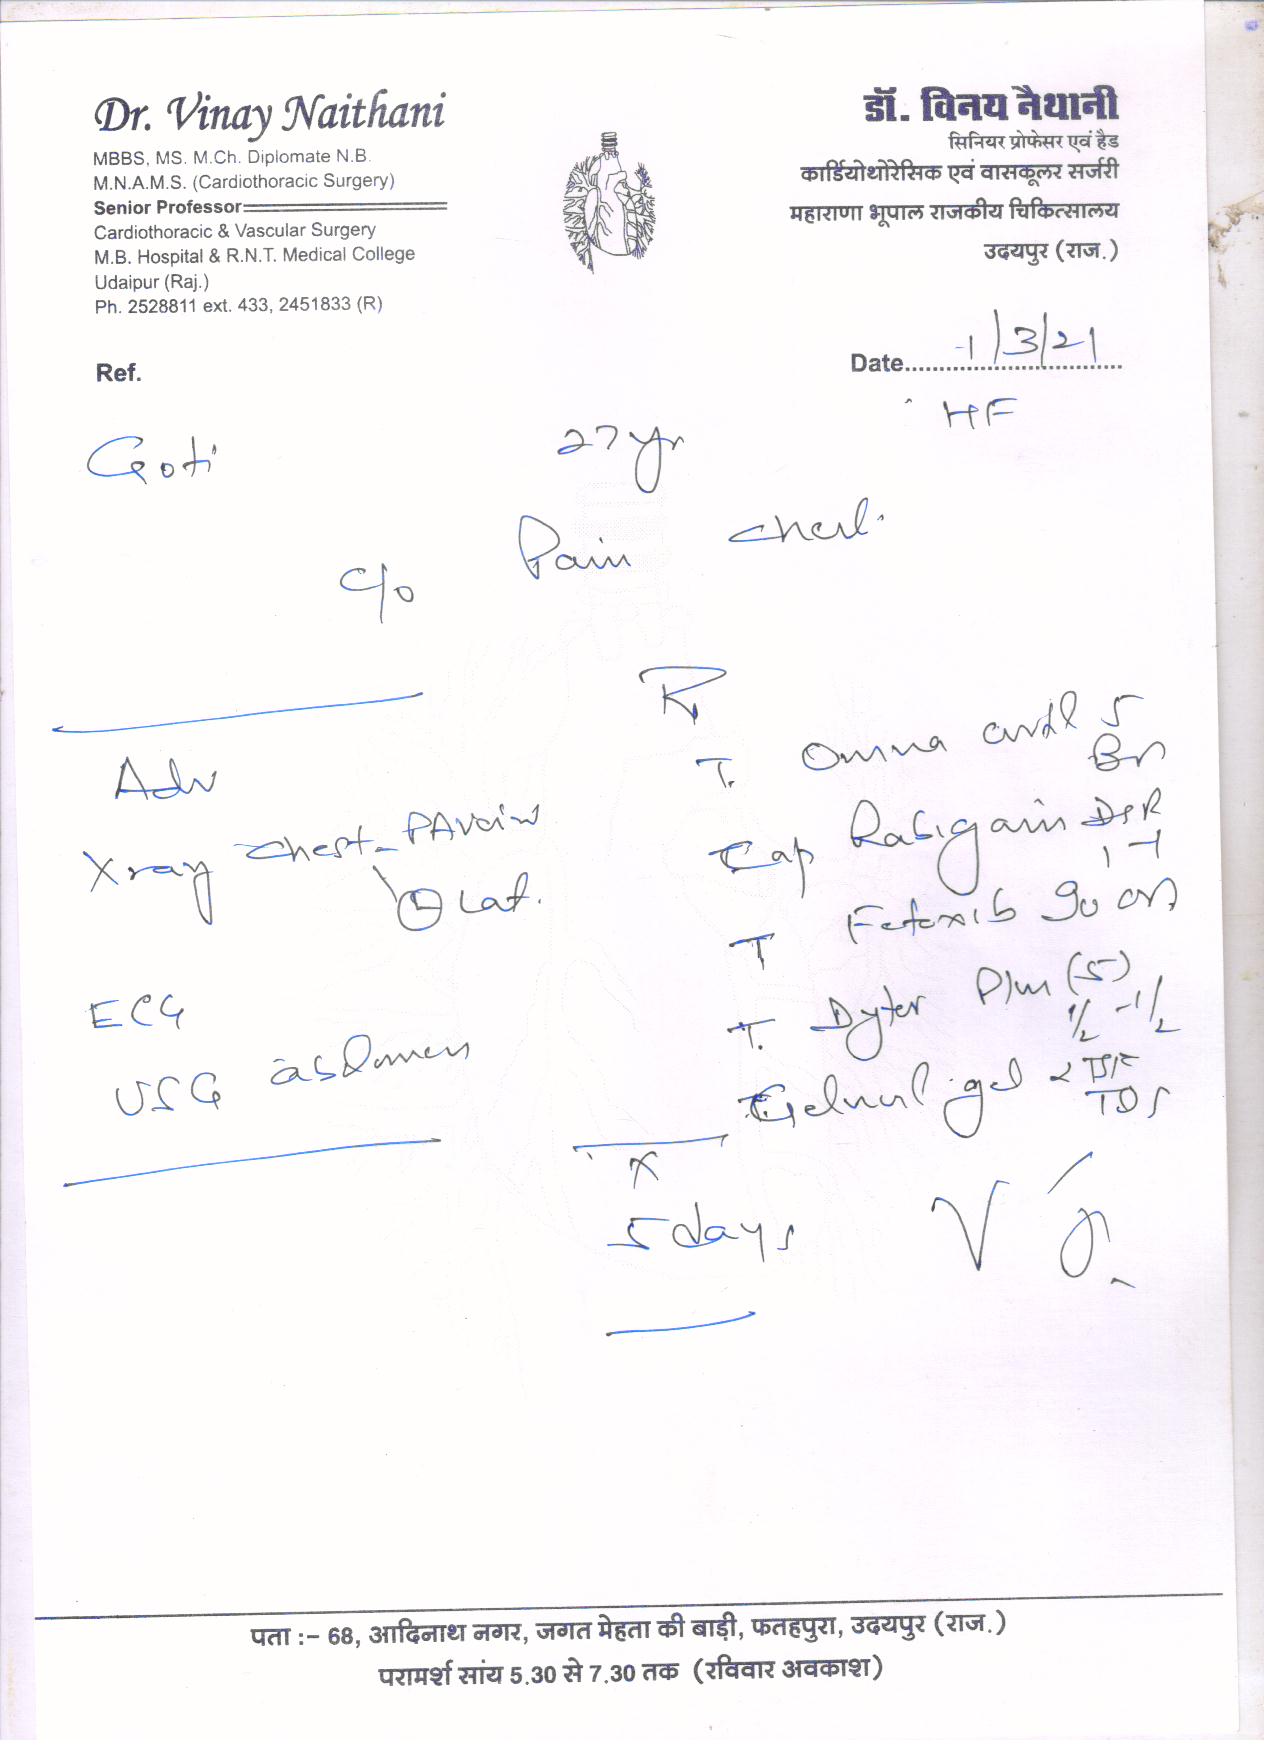 Dr. Vinay Naithani
MBBS, MS. M.Ch. Diplomate N.B.
M.N.A.M.S. (Cardiothoracic Surgery)
Senior Professor
Cardiothoracic & Vascular Surgery
M.B. Hospital & R.N.T. Medical College
Udaipur (Raj.)
Ph. 2528811 ext. 433, 2451833 (R)
डॉ. विनय नैथानी
सिनियर प्रोफेसर एवं हैड
कार्डियोथोरेसिक एवं वासकूलर सर्जरी
महाराणा भूपाल राजकीय चिकित्सालय
उदयपुर (राज.)
Ref.
Date 1/3/21
HF
Goti 27 yr
c/o Pain chest
Adv
Xray chest - PA view
Lat.
ECG
USG abdomen
Rx
T. 5
Cap Rabigain DSR
1-1
T Etoxib 90 OD
T. Dytor Plus (5)
1/2 - 1/2
gel 2 TSF
TDS
x
5 days
पता :- 68, आदिनाथ नगर, जगत मेहता की बाड़ी, फतहपुरा, उदयपुर (राज.)
परामर्श सांय 5.30 से 7.30 तक (रविवार अवकाश)